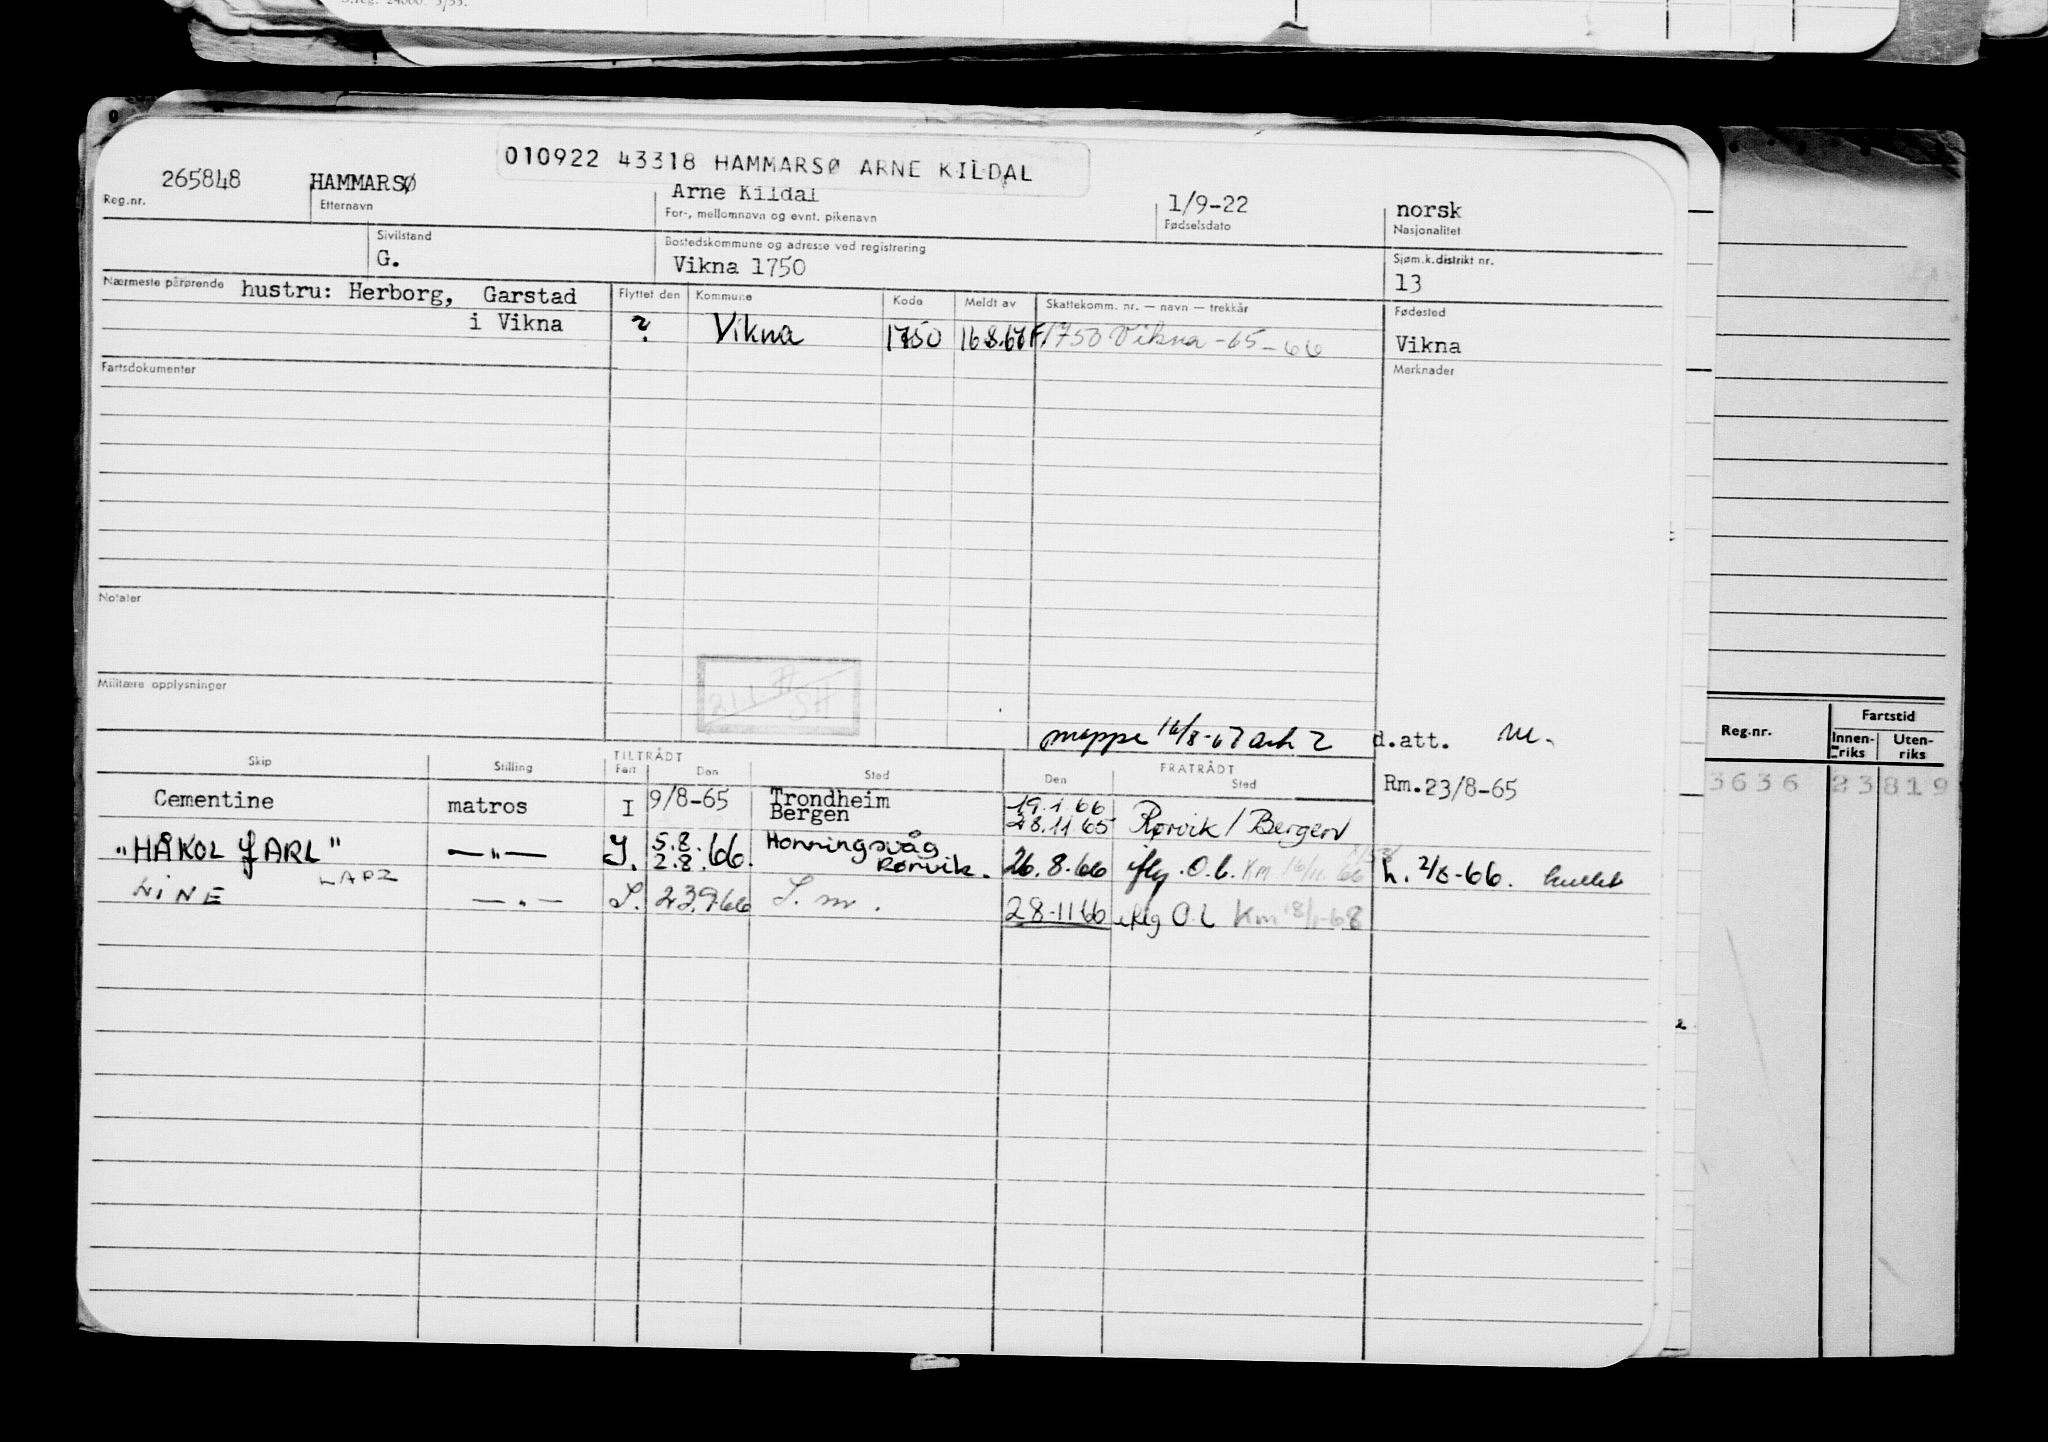 010922 43318 HAMMARSØ ARNE KILDAL
265848 HAMMARSØ Arne Kildal 1/9-22 norsk
Reg.nr. Etternavn For-, mellomnavn og evnt. pikenavn Fødselsdato Nasjonalitet
Sivilstand Bostedskommune og adresse ved registrering Sjøm.k.distrikt nr.
G. Vikna 1750 13
Nærmeste pårørende hustru: Herborg, Garstad Flyttet den Kommune Kode Meldt av Skattekomm. nr. — navn — trekkår Fødested
i Vikna ? Vikna 1750 16.8.67 F. 1750 Vikna -65-66 Vikna
Fartsdokumenter Merknader
Notater
Militære opplysninger
mappe 16/8-67 d.att.
Reg.nr. Fartstid
Innen-riks Uten-riks
3636 23 819
Skip Stilling TILTRÅDT FRATRÅDT
Fart Den Sted Den Sted
Rm. 23/8-65
Cementine matros I 9/8-65 Trondheim 19.1.66
Bergen 28.11.65 Rørvik / Bergen
"HÅKOL JARL" —"— I. 5.8.66. Honningsvåg
2.8. Rørvik. 26.8.66 iflg. O.l. Km h. 2/8-66.
LINE —"— 23.9.66 S.m. 28-11 66 iflg O.l Km